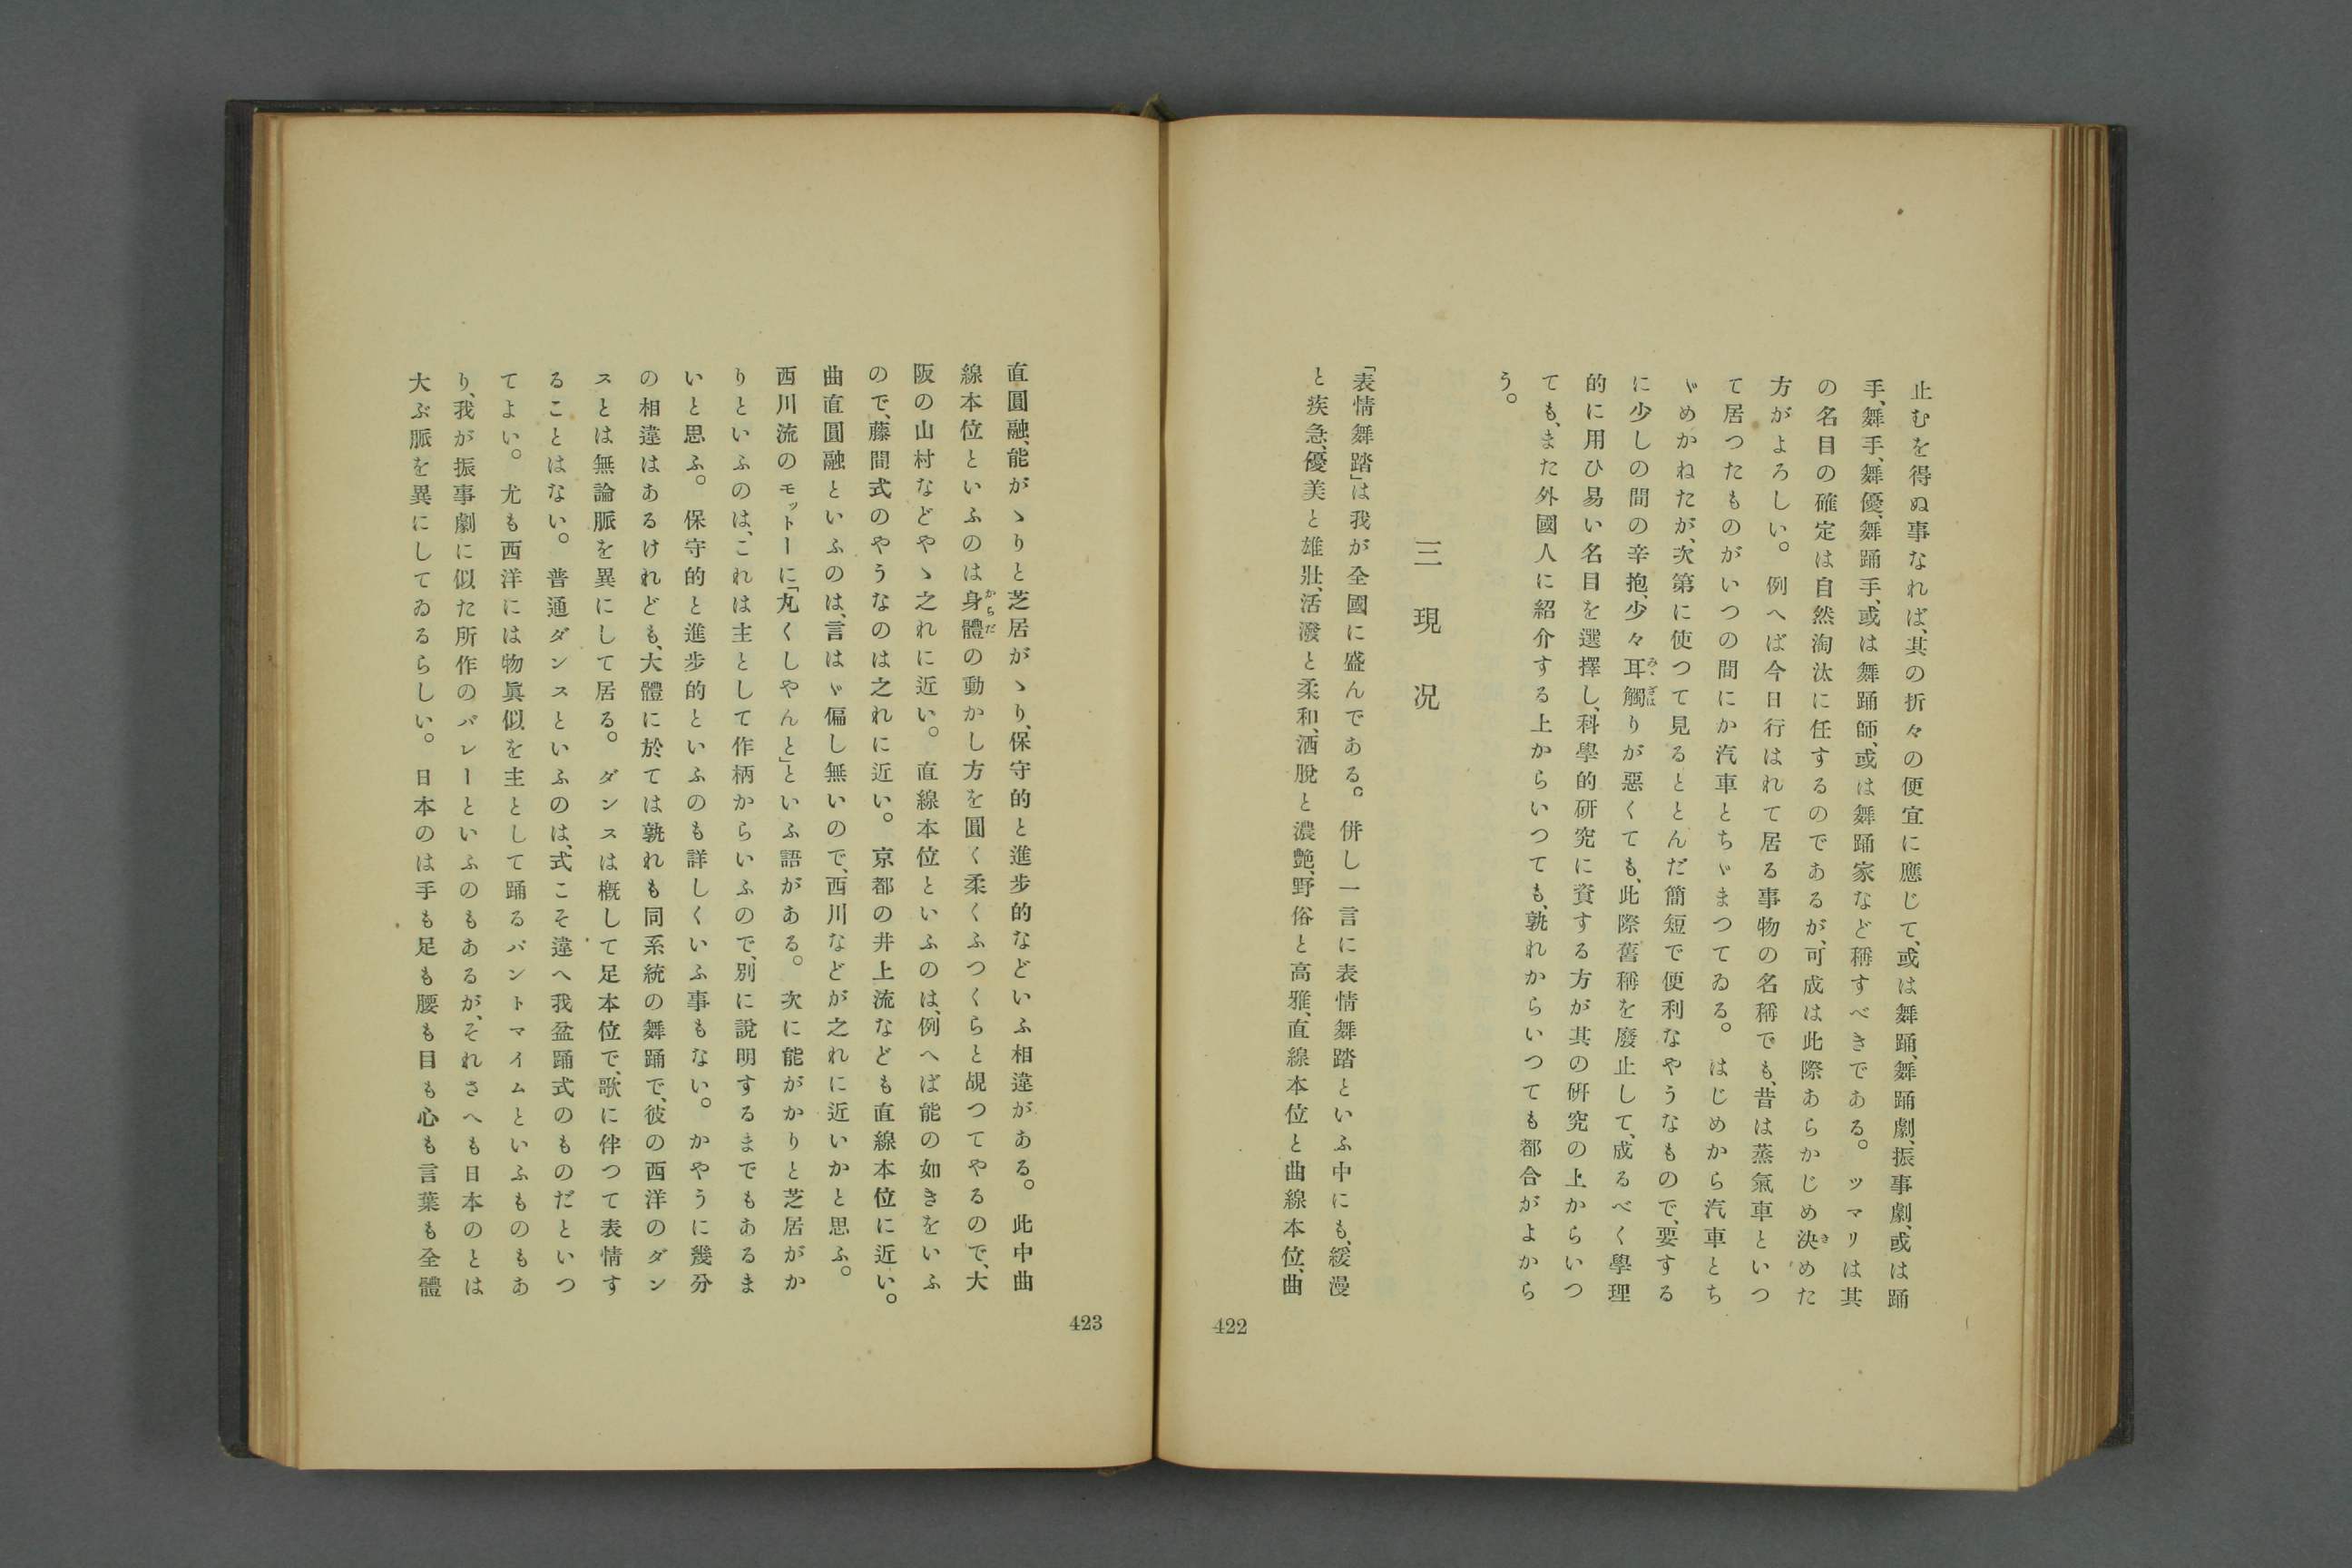 止むを得ぬ事なれば、其の折々の便宜に應じて、或は舞踊、舞踊劇、振事劇、或は踊
手、舞手、舞優、舞踊手、或は舞踊師、或は舞踊家など稱すべきである。ツマリは其
の名目の確定は自然淘汰に任するのであるが、可成は此際あらかじめ決めた
方がよろしい。例へば今日行はれて居る事物の名稱でも、昔は蒸氣車といつ
て居つたものがいつの間にか汽車とちゞまつてゐる。はじめから汽車とち
ゞめかねたが、次第に使つて見るととんだ簡短で便利なやうなもので、要する
に少しの間の辛抱、少々耳觸りが惡くても、此際舊稱を廢止して、成るべく學理
的に用ひ易い名目を選擇し、科學的研究に資する方が其の研究の上からいつ
ても、また外國人に紹介する上からいつても、孰れからいつても都合がよから
う。
三 現況
「表情舞踏」は我が全國に盛んである。併し一言に表情舞踏といふ中にも、緩漫
と疾急、優美と雄壯、活潑と柔和、洒脫と濃艷、野俗と高雅、直線本位と曲線本位、曲
422
直圓融、能がゝりと芝居がゝり、保守的と進步的などいふ相違がある。此中曲
線本位といふのは身體の動かし方を圓く柔くふつくらと覘つてやるので、大
阪の山村などやゝ之れに近い。直線本位といふのは、例へば能の如きをいふ
ので、藤間式のやうなのは之れに近い。京都の井上流なども直線本位に近い。
曲直圓融といふのは、言はゞ偏し無いので、西川などが之れに近いかと思ふ。
西川流のモットーに「丸くしやんと」といふ語がある。次に能がかりと芝居がか
りといふのは、これは主として作柄からいふので、別に說明するまでもあるま
いと思ふ。保守的と進步的といふのも詳しくいふ事もない。かやうに幾分
の相違はあるけれども、大體に於ては孰れも同系統の舞踊で、彼の西洋のダン
スとは無論脈を異にして居る。ダンスは槪して足本位で、歌に伴つて表情す
ることはない。普通ダンスといふのは、式こそ違へ我盆踊式のものだといつ
てよい。尤も西洋には物眞似を主として踊るパントマイムといふものもあ
り、我が振事劇に似た所作のバレーといふのもあるが、それさへも日本のとは
大ぶ脈を異にしてゐるらしい。日本のは手も足も腰も目も心も言葉も全體
423